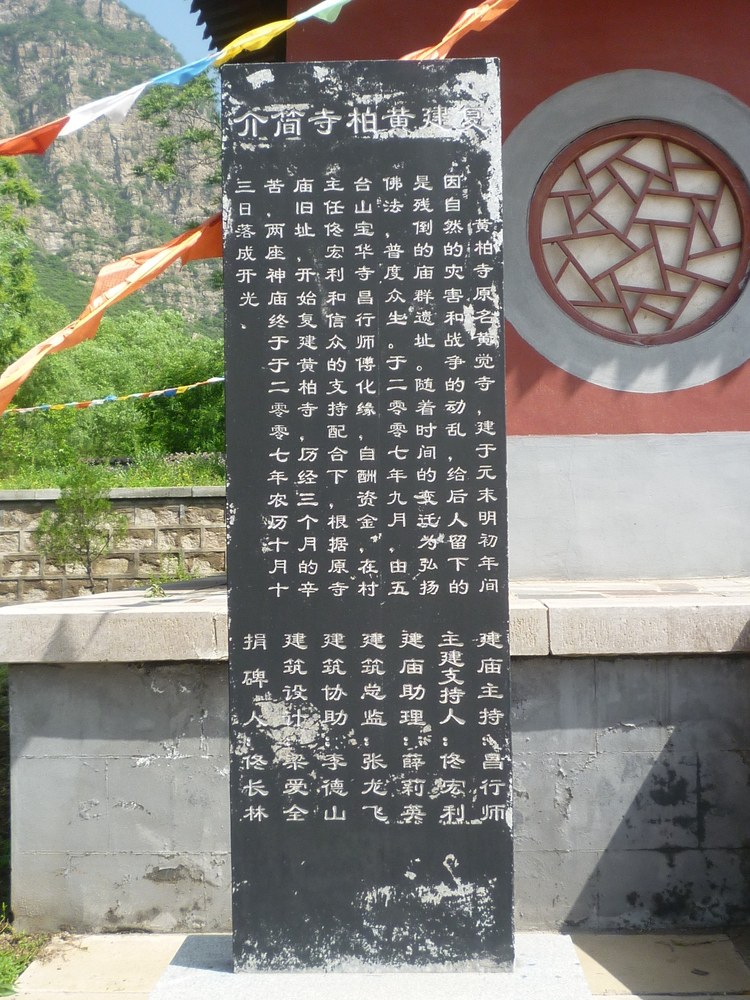 复建黄柏寺简介
黄柏寺原名黄觉寺，建于元末明初年间
因自然的灾害和战争的动乱，给后人留下的
是残倒的庙群遗址。随着时间的变迁为弘扬
佛法，普度众生。于二零零七年九月，由五
台山宝华寺昌行师傅化缘，自酬资金，在村
主任佟宏利和信众的支持配合下，根据原寺
庙旧址，开始复建黄柏寺，历经三个月的辛
苦，两座神庙终于于二零零七年农历十月十
三日落成开光、
建庙主持：昌行师
主建支持人：佟宏利
建庙助理：薛莉英
建筑总监：张龙飞
建筑协助：李德山
建筑设计：爱全
捐碑人：佟长林